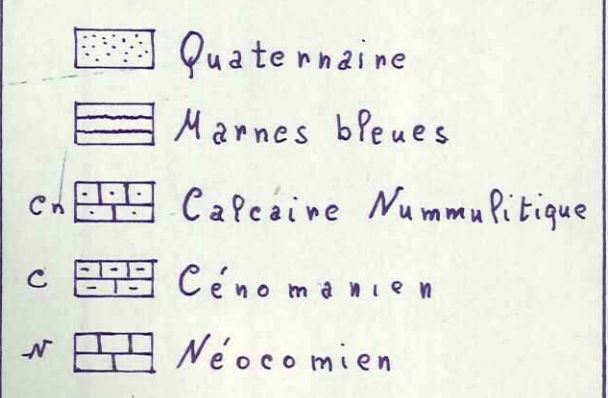 Quaternaire
Marnes bleues
Cn Calcaire Nummulitique
C Cénomanien
N Néocomien